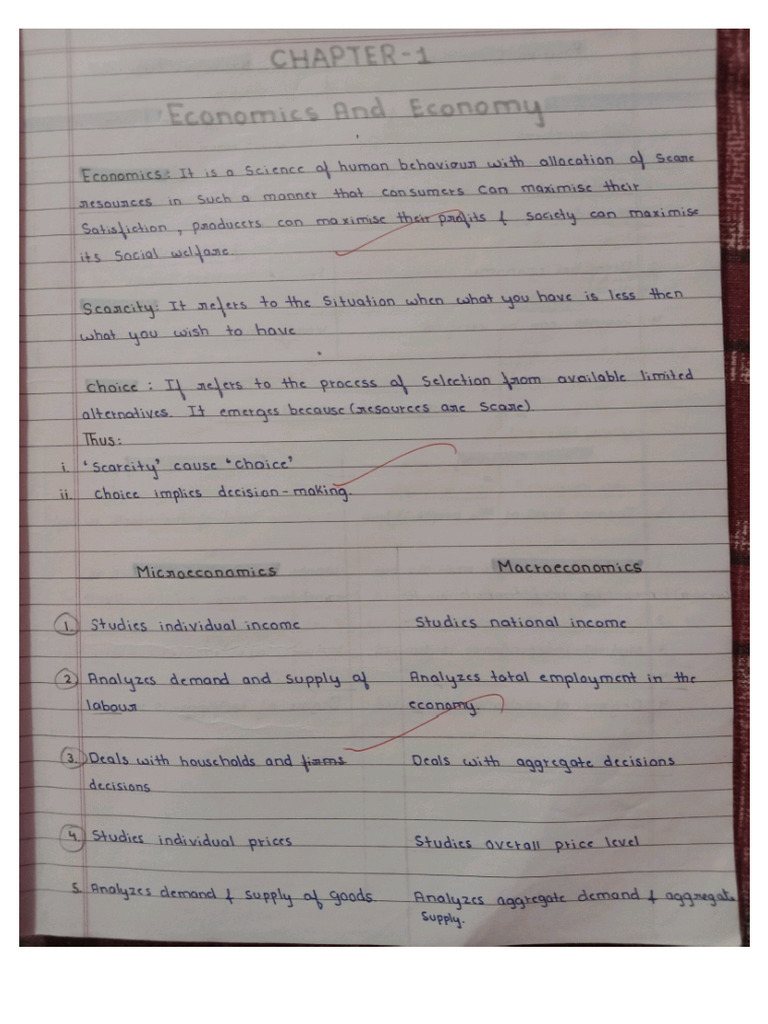 CHAPTER-1
Economics And Economy
Economics: It is a Science of human behaviour with allocation of Scare
resources in such a manner that consumers can maximise their
Satisfiction, producers can maximise their profits & society can maximise
its Social welfare.
Scarcity: It refers to the Situation when what you have is less then
what you wish to have
Choice: If refers to the process of Selection from available limited
alternatives. It emerges because (resources are Scare).
Thus:
i. 'Scarcity' cause "choice'
ii. Choice implies decision-making.
Microeconomics Macroeconomics
1. Studies individual income Studies national income
2. Analyzes demand and supply of Analyzes total employment in the
labour economy.
3. Deals with households and firms Deals with aggregate decisions
decisions
4. Studies individual prices Studies overall price level
5. Analyzes demand & supply of goods. Analyzes aggregate demand & aggregate
Supply.